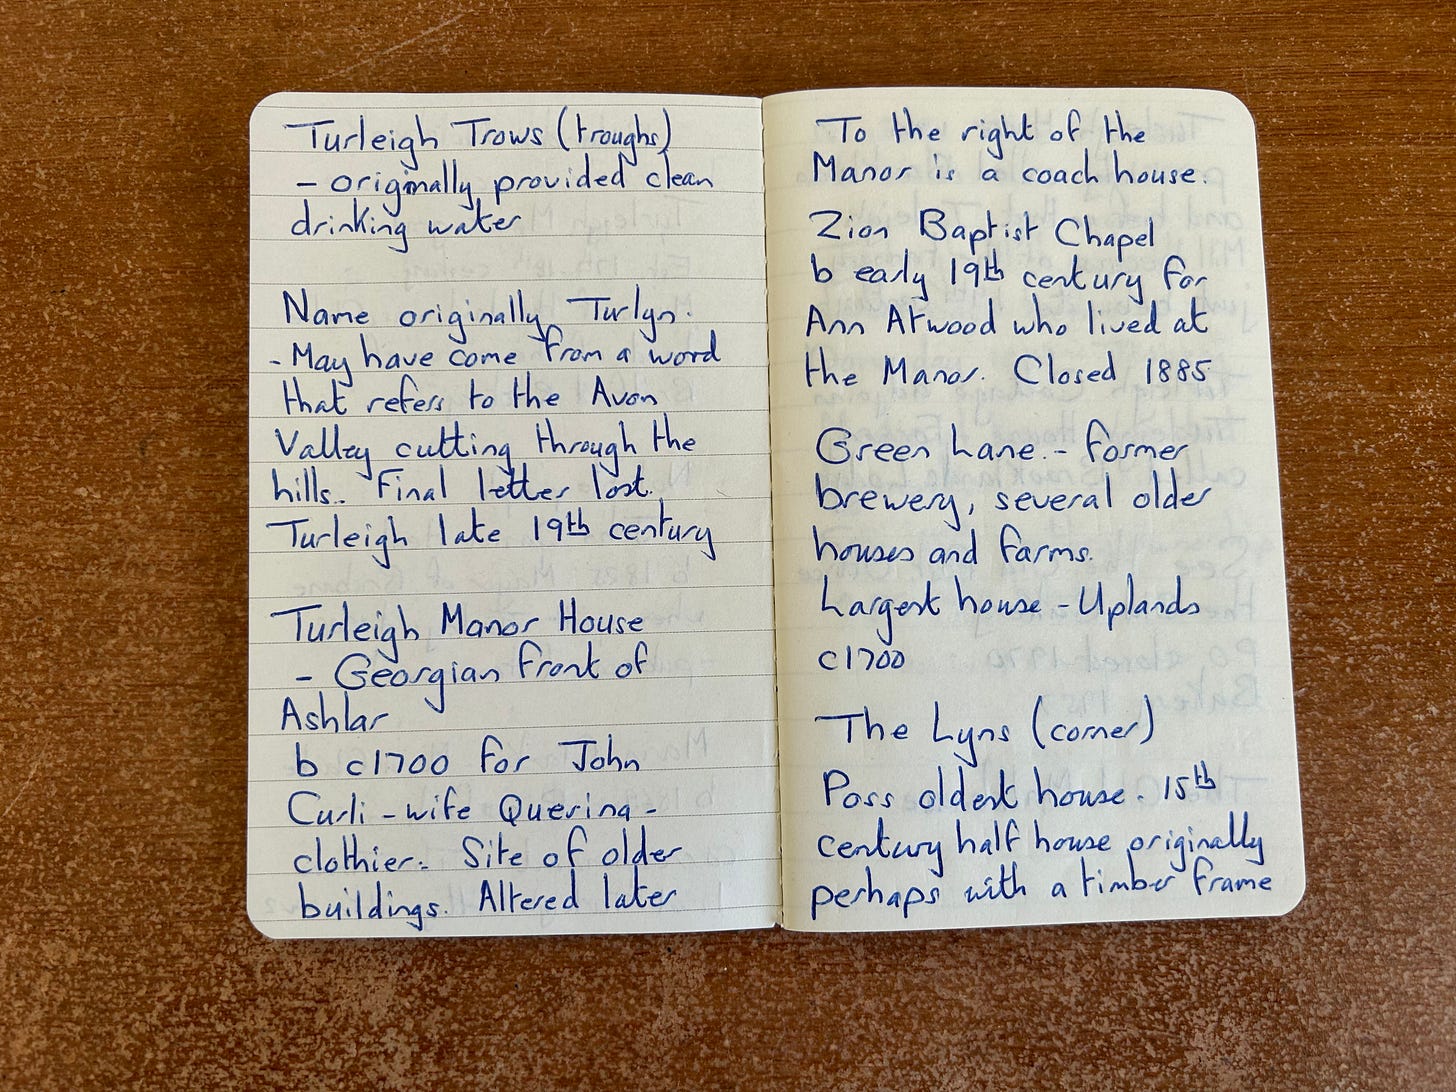 Turleigh Trows (troughs)
- originally provided clean
drinking water
Name originally Turlyn.
- May have come from a word
that refers to the Avon
Valley cutting through the
hills. Final letter lost.
Turleigh late 19th century
Turleigh Manor House
- Georgian front of
Ashlar
b c1700 for John
Curli - wife Querina -
clothier. Site of older
buildings. Altered later
To the right of the
Manor is a coach house.
Zion Baptist Chapel
b early 19th century for
Ann Atwood who lived at
the Manor. Closed 1885
Green Lane. - former
brewery, several older
houses and farms.
Largest house - Uplands
c1700
The Lyns (corner)
Poss oldest house. 15th
century half house originally
perhaps with a timber frame